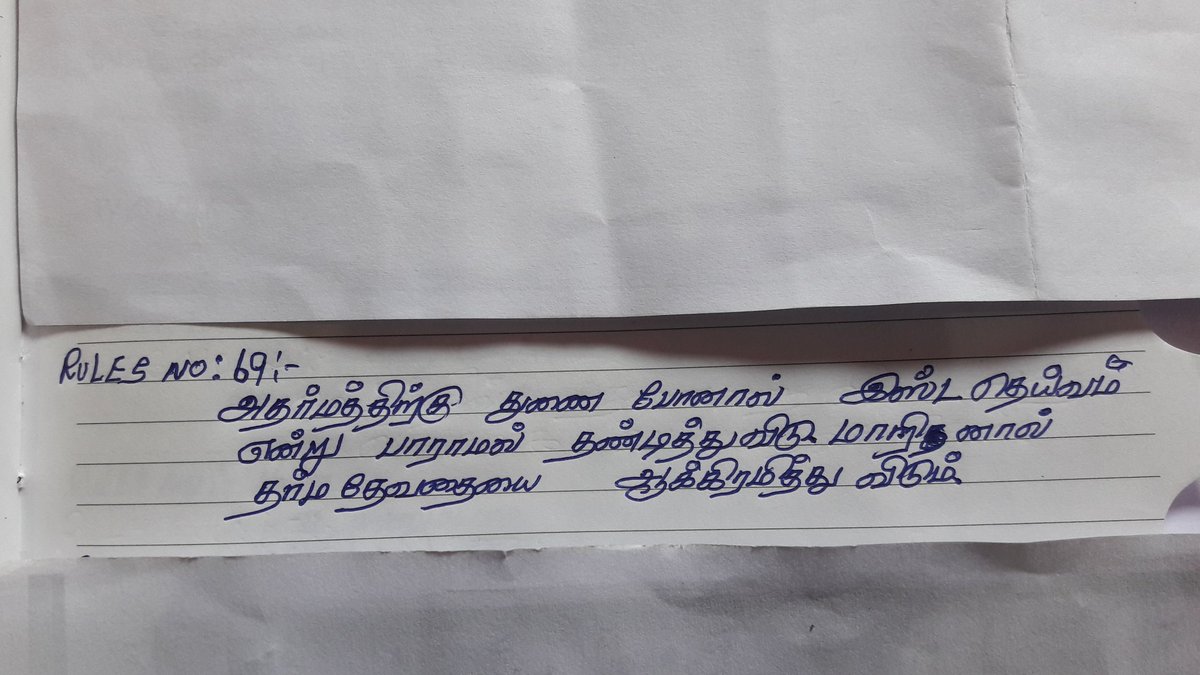 RULES NO: 69:-
அதர்மத்திற்கு துணை போனால் இஸ்ட தெய்வம்
என்று பாராமல் தண்டித்து விடு மாறினால்
தர்ம தேவதையை ஆக்கிரமித்து விடும்